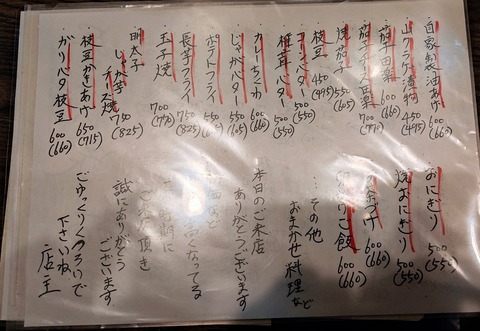 自家製油あげ 600(660)
山クラゲ漬物 450(495)
茄子田楽 600(660)
茄子チーズ田楽 700(770)
焼茄子 550(605)
枝豆 450(495)
コーンバター 500(550)
椎茸バター 500(550)
カレーちくわ 600(660)
じゃがバター 550(605)
ポテトフライ 550(605)
長芋フライ 750(825)
玉子焼 700(770)
明太子
じゃが芋
チーズ焼 750(825)
枝豆かきあげ 650(715)
ガリバタ枝豆 600(660)
おにぎり 500(550)
焼おにぎり 500(550)
茶づけ 600(660)
ご飯 600(660)
その他
おまかせ料理など
本日のご来店
ありがとうございます
高くなってる
ご
頂き
誠にありがとう
ございます
ごゆっくりくつろいで
下さいね
店主